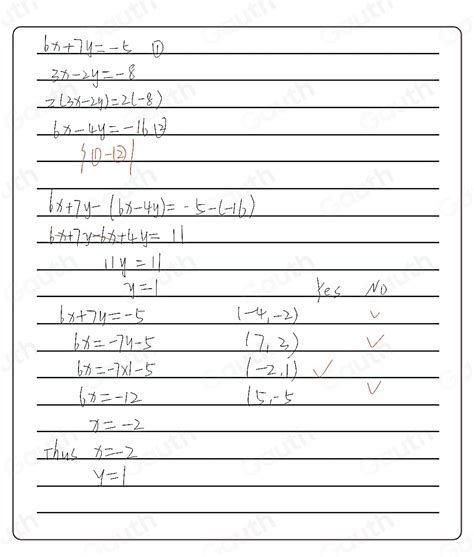 6x+7y=-5 ①
3x-2y=-8
2(3x-2y)=2(-8)
6x-4y=-16 ②
|①-②|
6x+7y-(6x-4y)=-5-(-16)
6x+7y-6x+4y=11
11y=11
y=1
Yes No
6x+7y=-5 (-4,-2) ✓
6x=-7y-5 (7,3) ✓
6x=-7x1-5 (-2,1) ✓
6x=-12 (5,-5 ✓
x=-2
Thus x=-2
y=1